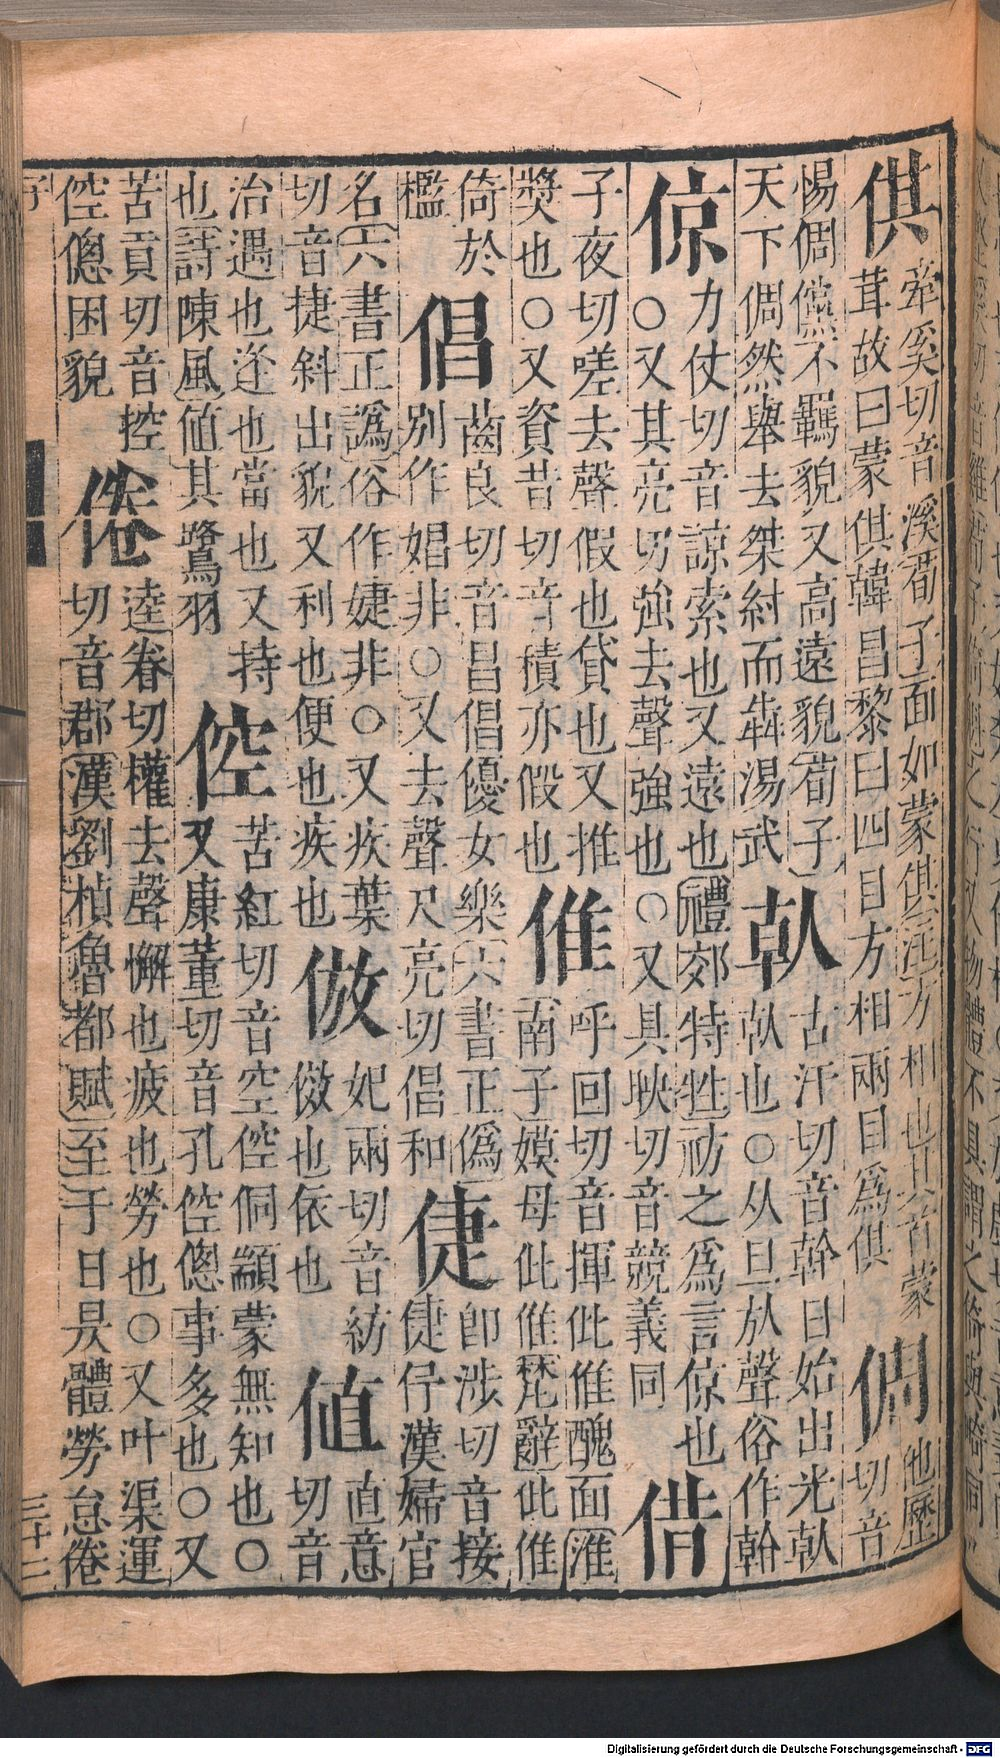 倛
牽奚切音溪荀子面如蒙倛註方相也其首蒙
茸故曰蒙倛韓昌黎曰四目方相兩目爲倛
倜
他歷
切音
惕倜儻不羈貌又高遠貌荀子
天下倜然舉去桀紂而犇湯武
倝
古汗切音幹日始出光倝
倝也○从旦㫃聲俗作幹
倞
力仗切音諒索也又遠也禮郊特牲祊之爲言倞也
○又其亮切強去聲強也○又具映切音競義同
借
子夜切嗟去聲假也貸也又推
奬也○又資昔切音積亦假也
倠
呼回切音揮仳倠醜面淮
南子嫫母仳倠楚辭仳倠
倚於
檻
倡
齒良切音昌倡優女樂六書正僞
別作娼非○又去聲尺亮切倡和
倢
即涉切音接
倢伃漢婦官
名六書正譌俗作婕非○又疾葉
切音捷斜出貌又利也便也疾也
倣
妃兩切音紡
傚也依也
値
直意
切音
治遇也逢也當也又持
也詩陳風値其鷺羽
倥
苦紅切音空倥侗顓蒙無知也○
又康董切音孔倥傯事多也○又
苦貢切音控
倥傯困貌
倦
逵眷切權去聲懈也疲也勞也○又叶渠運
切音郡漢劉楨魯都賦至于日昃體勞怠倦
子
三十二
Digitalisierung gefördert durch die Deutsche Forschungsgemeinschaft - DFG